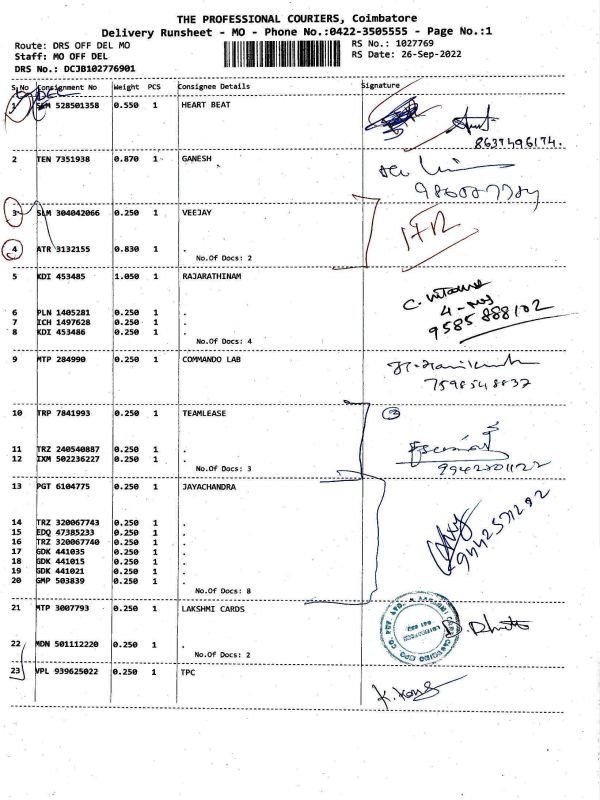 THE PROFESSIONAL COURIERS, Coimbatore
Delivery Runsheet - MO - Phone No.:0422-3505555 - Page No.:1
Route: DRS OFF DEL MO RS No.: 1027769
Staff: MO OFF DEL RS Date: 26-Sep-2022
DRS No.: DCJB102776901
S.No Consignment No Weight PCS Consignee Details Signature
1 SLM 528501358 0.550 1 HEART BEAT
8637496174.
2 TEN 7351938 0.870 1 GANESH
3 SLM 304042066 0.250 1 VEEJAY
4 ATR 3132155 0.830 1 .
No.Of Docs: 2
5 KDI 453485 1.050 1 RAJARATHINAM
6 PLN 1405281 0.250 1 .
7 ICH 1497628 0.250 1 .
8 KDI 453486 0.250 1 .
9585888102
No.Of Docs: 4
9 MTP 284990 0.250 1 COMMANDO LAB
7598548837
10 TRP 7841993 0.250 1 TEAMLEASE
11 TRZ 240540887 0.250 1 .
12 IXM 502236227 0.250 1 .
No.Of Docs: 3
13 PGT 6104775 0.250 1 JAYACHANDRA
14 TRZ 320067743 0.250 1 .
15 EDQ 47385233 0.250 1 .
16 TRZ 320067740 0.250 1 .
17 GDK 441035 0.250 1 .
18 GDK 441015 0.250 1 .
19 GDK 441021 0.250 1 .
20 GMP 503839 0.250 1 .
No.Of Docs: 8
21 MTP 3007793 0.250 1 LAKSHMI CARDS
22 MDN 501112220 0.250 1 .
No.Of Docs: 2
23 VPL 939625022 0.250 1 TPC